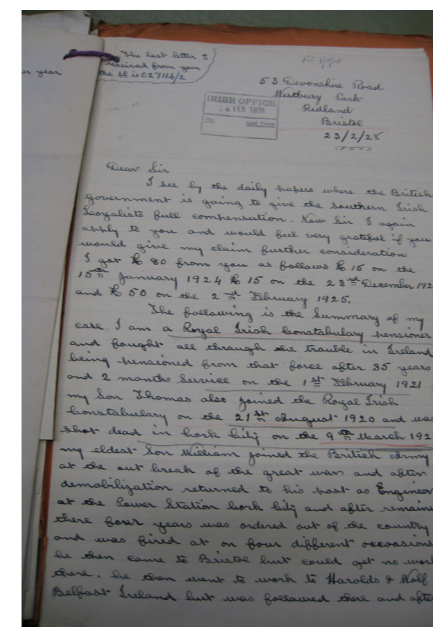 The last letter I
received from you
er year
53 Devonshire Road
Westbury Park
Redland
Bristol
23/2/28
IRISH OFFICE
FEB
Dear Sir
I see by the daily papers where the British
government is going to give the Southern Irish
Loyalists full compensation. Now Sir I again
apply to you and would feel very grateful if you
would give my claim further consideration
I got £ 80 from you as follows £ 15 on the
15th January 1924 £ 15 on the 23rd December 192
and £ 50 on the 2nd February 1925.
The following is the Summary of my
case. I am a Royal Irish Constabulary pensioner
and fought all through the trouble in Ireland
being pensioned from that force after 35 years
and 2 months Service on the 1st February 1921
my Son Thomas also joined the Royal Irish
Constabulary on the 21st August 1920 and was
shot dead in Cork City on the 9th March 192
my eldest Son William joined the British Army
at the out break of the great war and after
demobilization returned to his post as Engineer
at the Power Station Cork City and after remaine
there four years was ordered out of the country
and was fired at on four different occasions
he then came to Bristol but could get no work
there. he then went to work to Harolds & Wolf
Belfast Ireland but was followed there and after